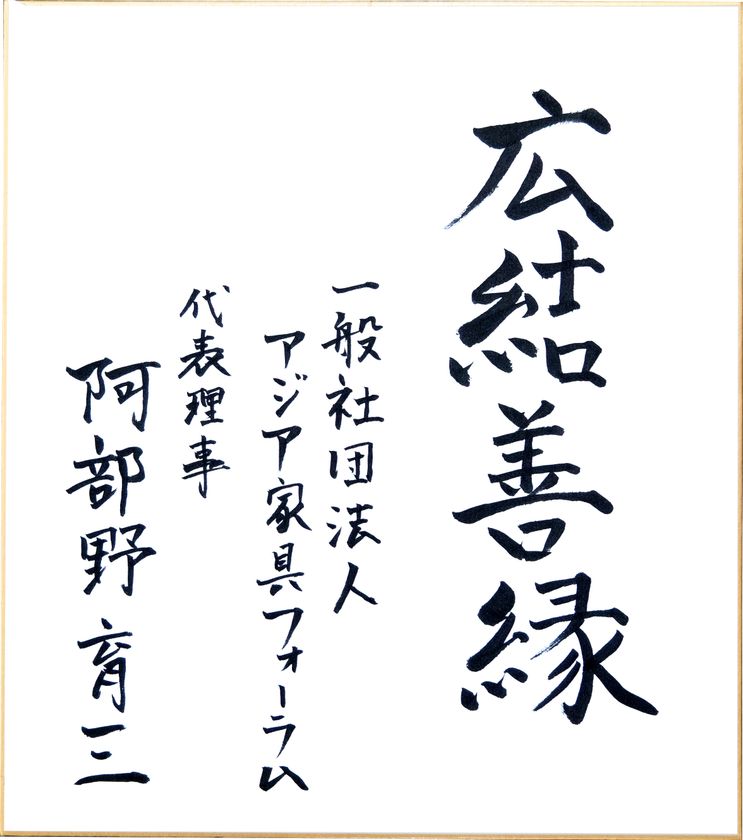 広結善縁
一般社団法人
アジア家具フォーラム
代表理事
阿部野育三